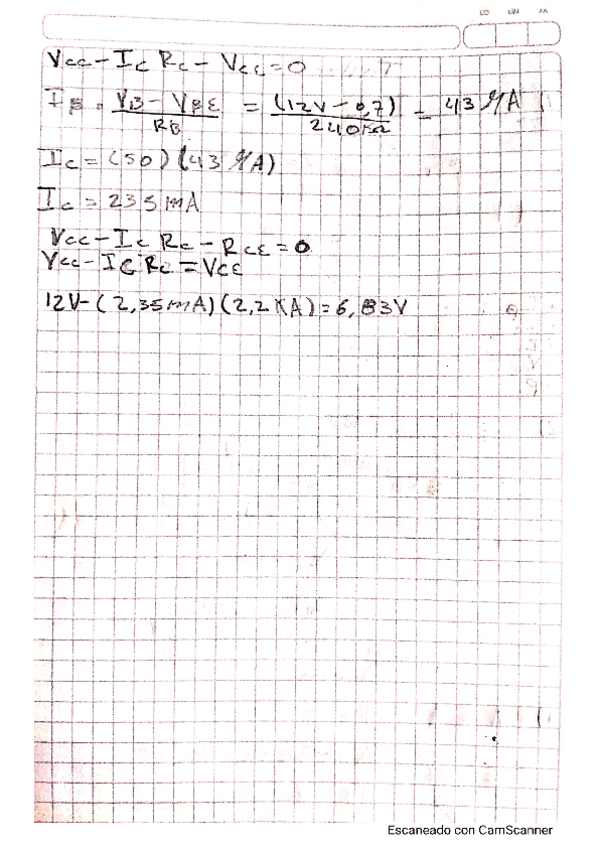 Vcc - Ic Rc - VCE = 0
IB = VB - VBE / RB = (12V - 0,7) / 240KΩ = 43 MA
Ic = (50) (43 MA)
Ic = 235mA
Vcc - Ic Rc - RCE = 0
Vcc - Ic Rc = VCE
12V - (2,35mA)(2,2KA) = 6,83V
Escaneado con CamScanner